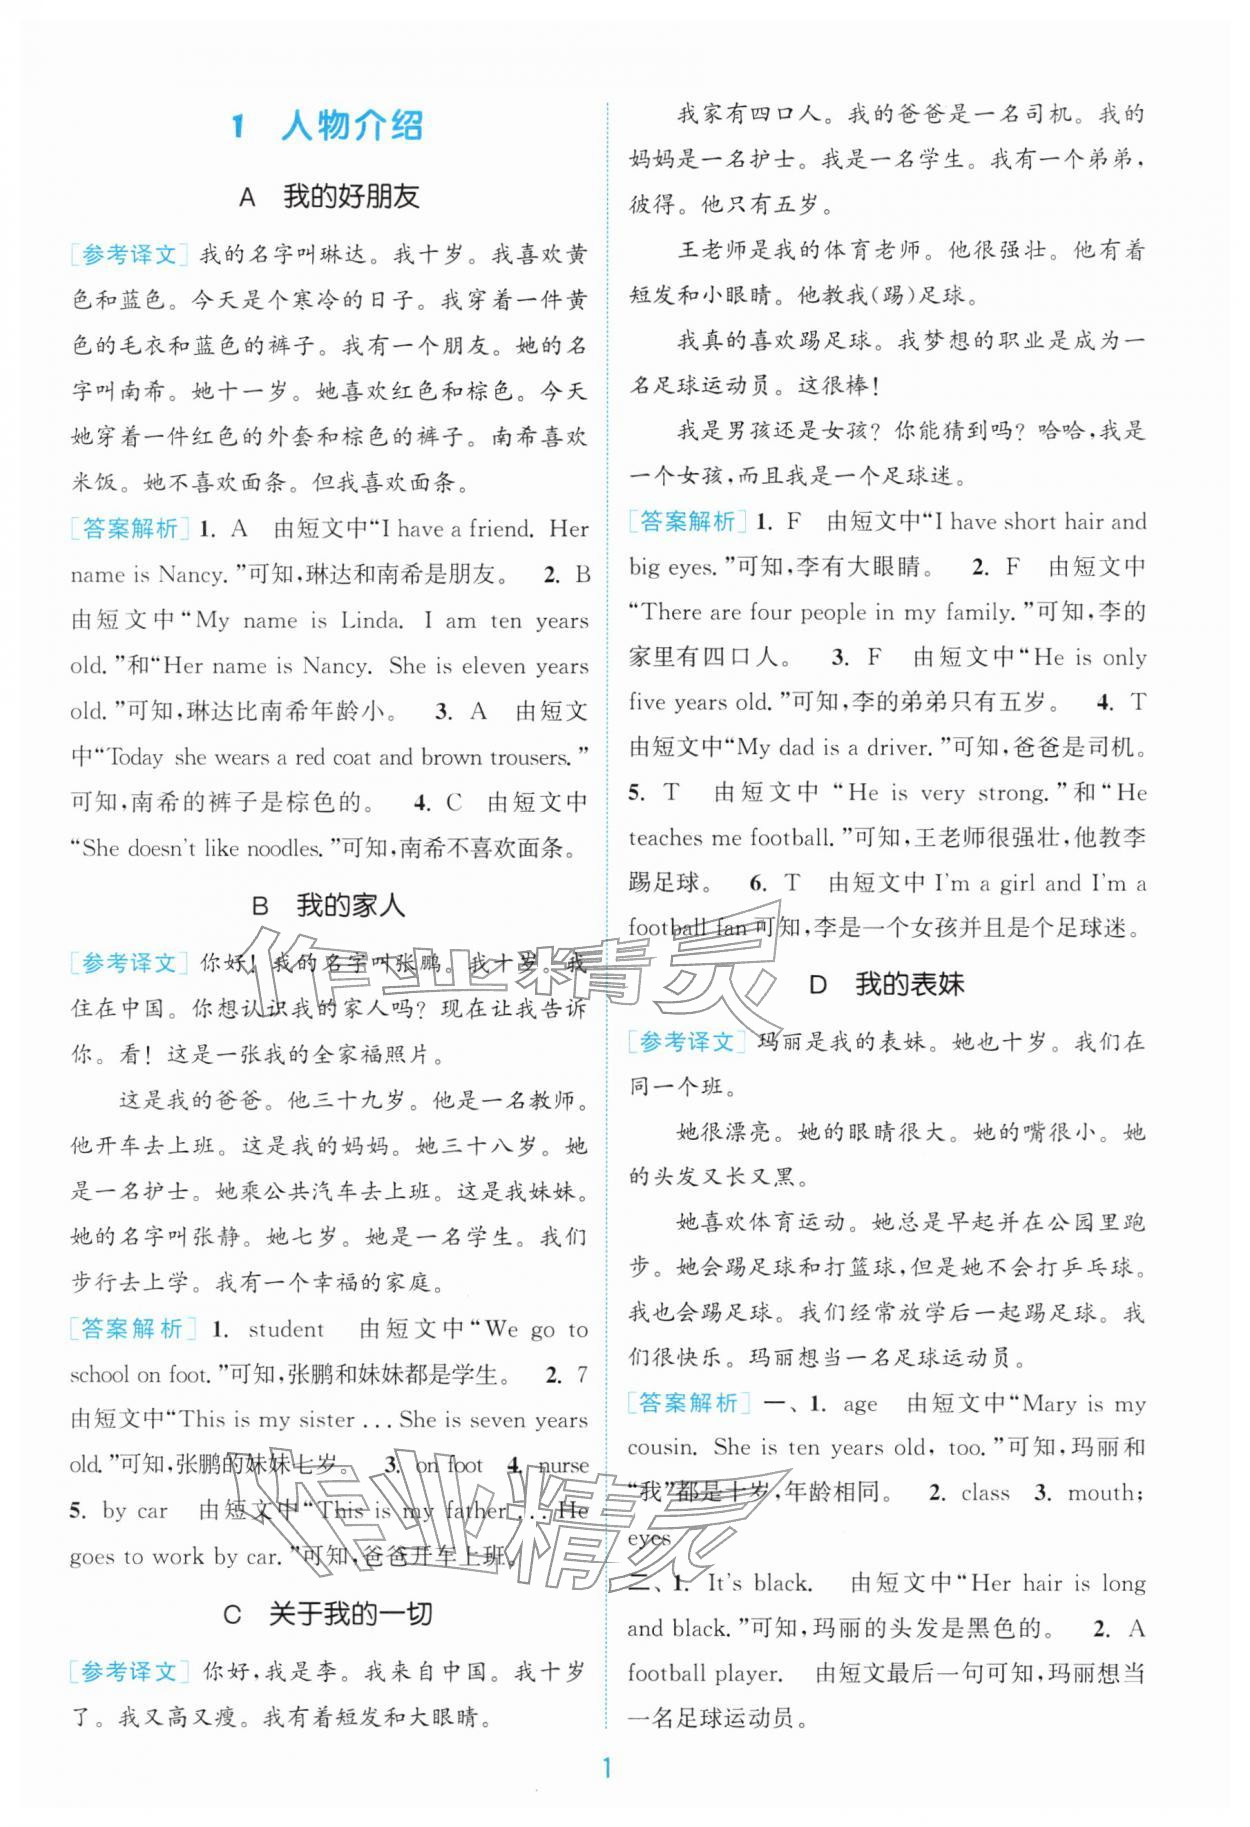 1 人物介绍
A 我的好朋友
[参考译文] 我的名字叫琳达。我十岁。我喜欢黄
色和蓝色。今天是个寒冷的日子。我穿着一件黄
色的毛衣和蓝色的裤子。我有一个朋友。她的名
字叫南希。她十一岁。她喜欢红色和棕色。今天
她穿着一件红色的外套和棕色的裤子。南希喜欢
米饭。她不喜欢面条。但我喜欢面条。
[答案解析] 1. A 由短文中“I have a friend. Her
name is Nancy.”可知,琳达和南希是朋友。 2. B
由短文中“My name is Linda. I am ten years
old.”和“Her name is Nancy. She is eleven years
old.”可知,琳达比南希年龄小。 3. A 由短文
中“Today she wears a red coat and brown trousers.”
可知,南希的裤子是棕色的。 4. C 由短文中
“She doesn't like noodles.”可知,南希不喜欢面条。
B 我的家人
[参考译文] 你好!我的名字叫张鹏。我十岁。我
住在中国。你想认识我的家人吗?现在让我告诉
你。看!这是一张我的全家福照片。
这是我的爸爸。他三十九岁。他是一名教师。
他开车去上班。这是我的妈妈。她三十八岁。她
是一名护士。她乘公共汽车去上班。这是我妹妹。
她的名字叫张静。她七岁。她是一名学生。我们
步行去上学。我有一个幸福的家庭。
[答案解析] 1. student 由短文中“We go to
school on foot.”可知,张鹏和妹妹都是学生。 2. 7
由短文中“This is my sister ... She is seven years
old.”可知,张鹏的妹妹七岁。 3. on foot 4. nurse
5. by car 由短文中“This is my father ... He
goes to work by car.”可知,爸爸开车上班。
C 关于我的一切
[参考译文] 你好,我是李。我来自中国。我十岁
了。我又高又瘦。我有着短发和大眼睛。
我家有四口人。我的爸爸是一名司机。我的
妈妈是一名护士。我是一名学生。我有一个弟弟,
彼得。他只有五岁。
王老师是我的体育老师。他很强壮。他有着
短发和小眼睛。他教我(踢)足球。
我真的喜欢踢足球。我梦想的职业是成为一
名足球运动员。这很棒!
我是男孩还是女孩?你能猜到吗?哈哈,我是
一个女孩,而且我是一个足球迷。
[答案解析] 1. F 由短文中“I have short hair and
big eyes.”可知,李有大眼睛。 2. F 由短文中
“There are four people in my family.”可知,李的
家里有四口人。 3. F 由短文中“He is only
five years old.”可知,李的弟弟只有五岁。 4. T
由短文中“My dad is a driver.”可知,爸爸是司机。
5. T 由短文中“He is very strong.”和“He
teaches me football.”可知,王老师很强壮,他教李
踢足球。 6. T 由短文中 I'm a girl and I'm a
football fan 可知,李是一个女孩并且是个足球迷。
D 我的表妹
[参考译文] 玛丽是我的表妹。她也十岁。我们在
同一个班。
她很漂亮。她的眼睛很大。她的嘴很小。她
的头发又长又黑。
她喜欢体育运动。她总是早起并在公园里跑
步。她会踢足球和打篮球,但是她不会打乒乓球。
我也会踢足球。我们经常放学后一起踢足球。我
们很快乐。玛丽想当一名足球运动员。
[答案解析] 一、1. age 由短文中“Mary is my
cousin. She is ten years old, too.”可知,玛丽和
“我”都是十岁,年龄相同。 2. class 3. mouth;
eyes
二、1. It's black. 由短文中“Her hair is long
and black.”可知,玛丽的头发是黑色的。 2. A
football player. 由短文最后一句可知,玛丽想当
一名足球运动员。
作业精灵
作业精灵
1